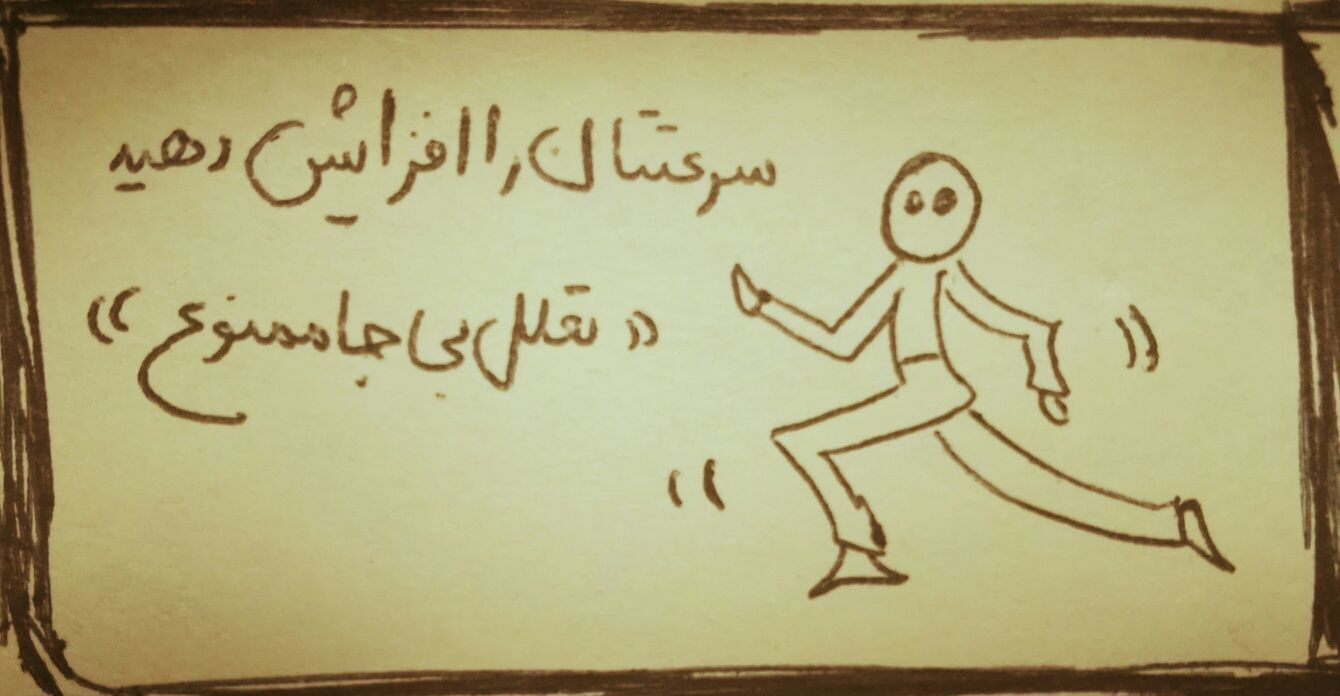 سرعتتان را افزایش دهید
«تعلل بی جا ممنوع»